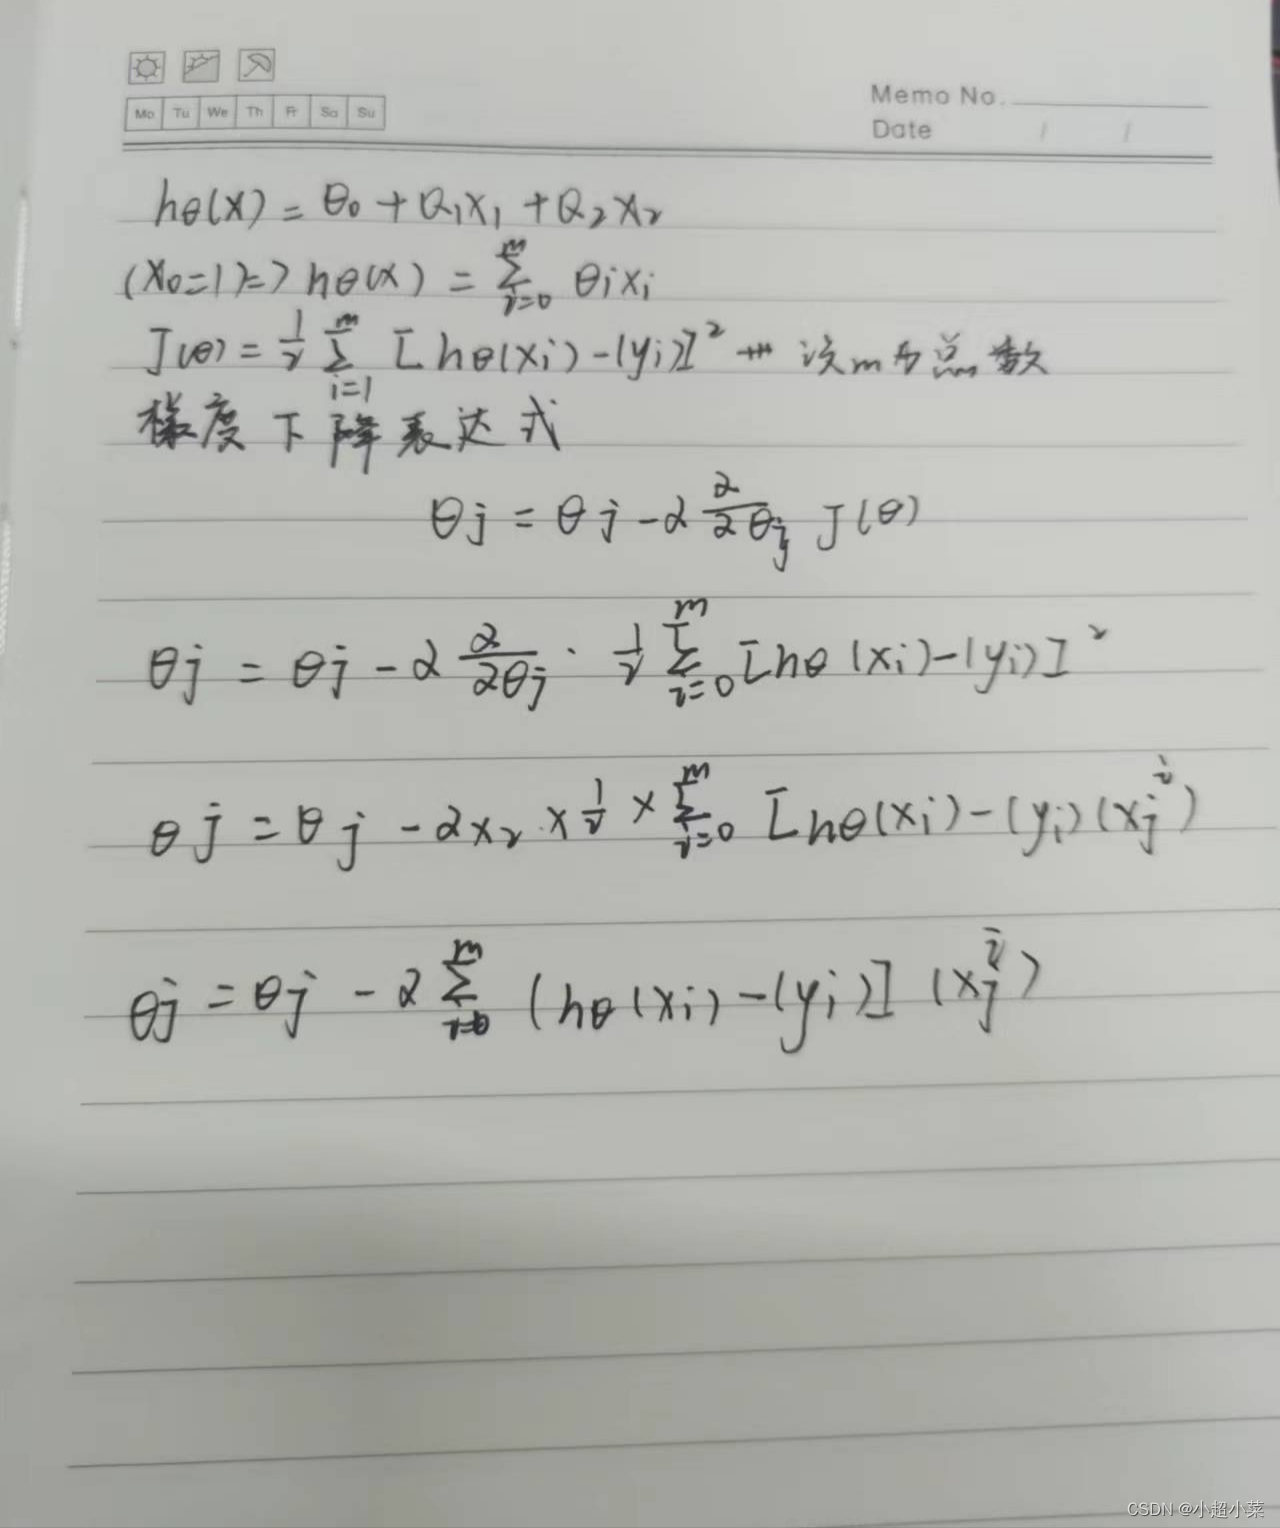 Mo Tu We Th Fr Sa Su
Memo No.
Date / /
hθ(x) = θ₀ + θ₁x₁ + θ₂x₂
(x₀=1) => hθ(x) = ∑_{i=0}^{m} θixi
J(θ) = 1/2 ∑_{i=1}^{m} [hθ(xi) - (yi)]² 设m为总数
梯度下降表达式
θj = θj - α ∂/∂θj J(θ)
θj = θj - α ∂/∂θj · 1/2 ∑_{i=0}^{m} [hθ(xi) - (yi)]²
θj = θj - α×2 × 1/2 × ∑_{i=0}^{m} [hθ(xi) - (yi) (xj^i)
θj = θj - α ∑_{i=0}^{m} (hθ(xi) - (yi)] (xj^i)
CSDN @小超小菜